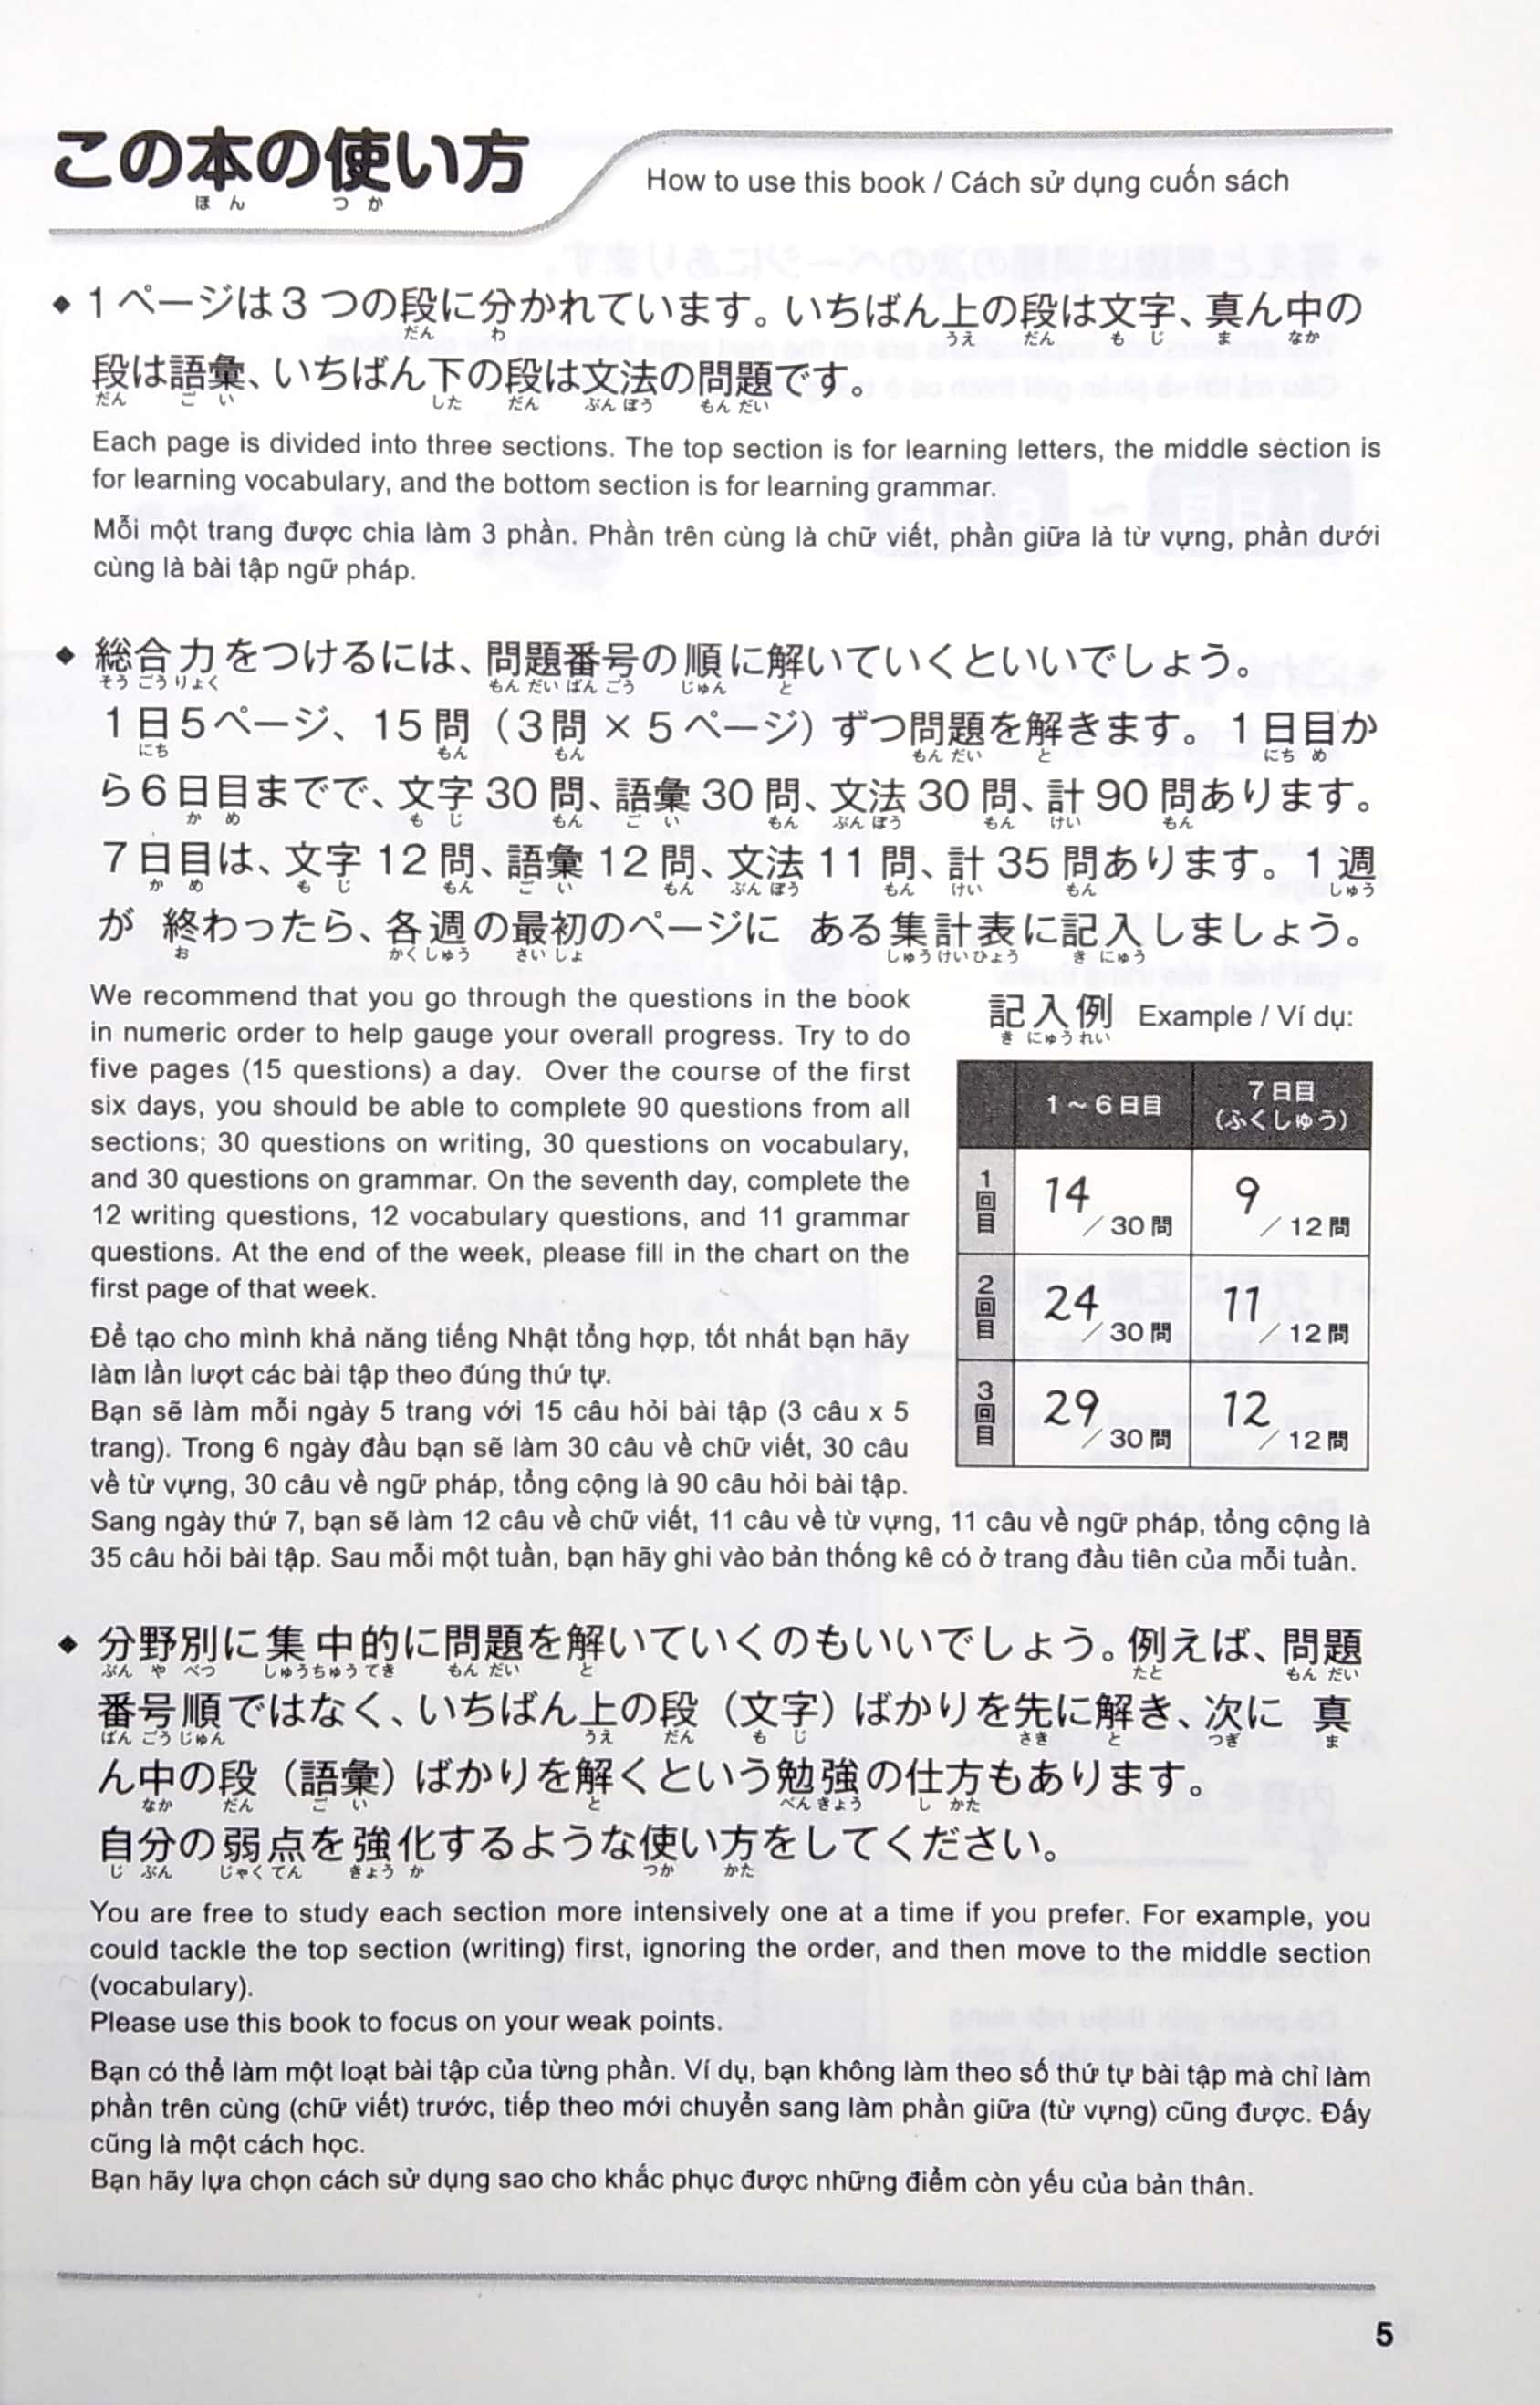 この本の使い方
ほん つか
How to use this book / Cách sử dụng cuốn sách
◆ 1ページは3つの段に分かれています。いちばん上の段は文字、真ん中の
だん わ うえ だん も じ ま なか
段は語彙、いちばん下の段は文法の問題です。
だん ご い した だん ぶん ぽう もん だい
Each page is divided into three sections. The top section is for learning letters, the middle section is
for learning vocabulary, and the bottom section is for learning grammar.
Mỗi một trang được chia làm 3 phần. Phần trên cùng là chữ viết, phần giữa là từ vựng, phần dưới
cùng là bài tập ngữ pháp.
◆ 総合力をつけるには、問題番号の順に解いていくといいでしょう。
そう ごう りょく もん だい ばん ごう じゅん と
1日5ページ、15問（3問×5ページ）ずつ問題を解きます。1日目か
にち もん もん もん だい と にち め
ら6日目までで、文字30問、語彙30問、文法30問、計90問あります。
か め も じ もん ご い もん ぶん ぽう もん けい もん
7日目は、文字12問、語彙12問、文法11問、計35問あります。1週
か め も じ もん ご い もん ぶん ぽう もん けい もん しゅう
が 終わったら、各週の最初のページに ある集計表に記入しましょう。
お かく しゅう さい しょ しゅう けい ひょう き にゅう
We recommend that you go through the questions in the book
in numeric order to help gauge your overall progress. Try to do
five pages (15 questions) a day. Over the course of the first
six days, you should be able to complete 90 questions from all
sections; 30 questions on writing, 30 questions on vocabulary,
and 30 questions on grammar. On the seventh day, complete the
12 writing questions, 12 vocabulary questions, and 11 grammar
questions. At the end of the week, please fill in the chart on the
first page of that week.
記入例 Example / Ví dụ:
き にゅう れい
1～6日目 7日目
（ふくしゅう）
1回目 14／30問 9／12問
2回目 24／30問 11／12問
3回目 29／30問 12／12問
Để tạo cho mình khả năng tiếng Nhật tổng hợp, tốt nhất bạn hãy
làm lần lượt các bài tập theo đúng thứ tự.
Bạn sẽ làm mỗi ngày 5 trang với 15 câu hỏi bài tập (3 câu x 5
trang). Trong 6 ngày đầu bạn sẽ làm 30 câu về chữ viết, 30 câu
về từ vựng, 30 câu về ngữ pháp, tổng cộng là 90 câu hỏi bài tập.
Sang ngày thứ 7, bạn sẽ làm 12 câu về chữ viết, 11 câu về từ vựng, 11 câu về ngữ pháp, tổng cộng là
35 câu hỏi bài tập. Sau mỗi một tuần, bạn hãy ghi vào bản thống kê có ở trang đầu tiên của mỗi tuần.
◆ 分野別に集中的に問題を解いていくのもいいでしょう。例えば、問題
ぶん や べつ しゅう ちゅう てき もん だい と たと もん だい
番号順ではなく、いちばん上の段（文字）ばかりを先に解き、次に 真
ばん ごう じゅん うえ だん も じ さき と つぎ ま
ん中の段（語彙）ばかりを解くという勉強の仕方もあります。
なか だん ご い と べん きょう し かた
自分の弱点を強化するような使い方をしてください。
じ ぶん じゃく てん きょう か つか かた
You are free to study each section more intensively one at a time if you prefer. For example, you
could tackle the top section (writing) first, ignoring the order, and then move to the middle section
(vocabulary).
Please use this book to focus on your weak points.
Bạn có thể làm một loạt bài tập của từng phần. Ví dụ, bạn không làm theo số thứ tự bài tập mà chỉ làm
phần trên cùng (chữ viết) trước, tiếp theo mới chuyển sang làm phần giữa (từ vựng) cũng được. Đấy
cũng là một cách học.
Bạn hãy lựa chọn cách sử dụng sao cho khắc phục được những điểm còn yếu của bản thân.
5